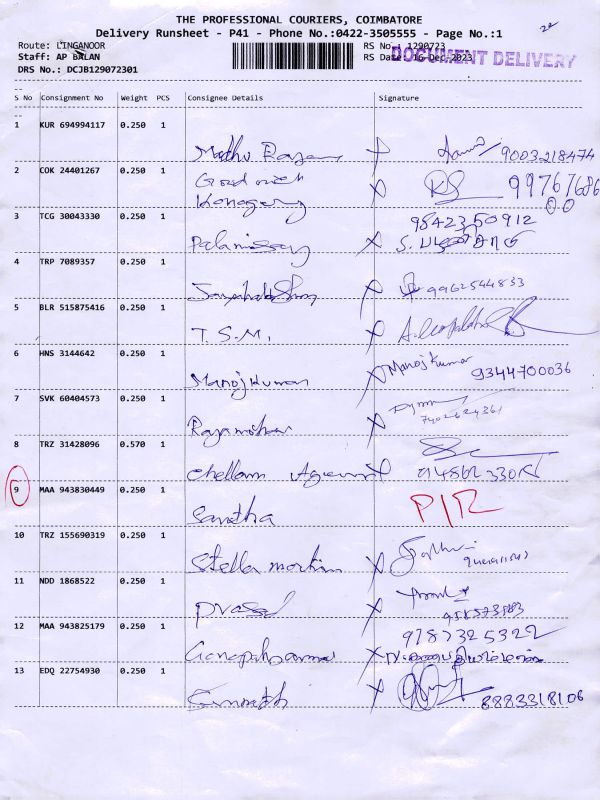 THE PROFESSIONAL COURIERS, COIMBATORE
Delivery Runsheet - P41 - Phone No.:0422-3505555 - Page No.:1
Route: LINGANOOR RS No : 1290723
Staff: AP BALAN RS Date: 16-Dec-2023
DOCUMENT DELIVERY
DRS No.: DCJB129072301
S No Consignment No Weight PCS Consignee Details Signature
1 KUR 694994117 0.250 1
Madhu 9003218474
2 COK 24401267 0.250 1
Good 99767686
00
3 TCG 30043330 0.250 1
9842350912
Palanissay
4 TRP 7089357 0.250 1
9962544833
5 BLR 515875416 0.250 1
T.S.M.
6 HNS 3144642 0.250 1
Manoj Kumar
Manojkumar 9344700036
7 SVK 60404573 0.250 1
8 TRZ 31428096 0.570 1
chellam
9 MAA 943830449 0.250 1
Santha P/R
10 TRZ 155690319 0.250 1
Stella martin
11 NDD 1868522 0.250 1
Prasad
12 MAA 943825179 0.250 1
9787325322
13 EDQ 22754930 0.250 1
8883318106